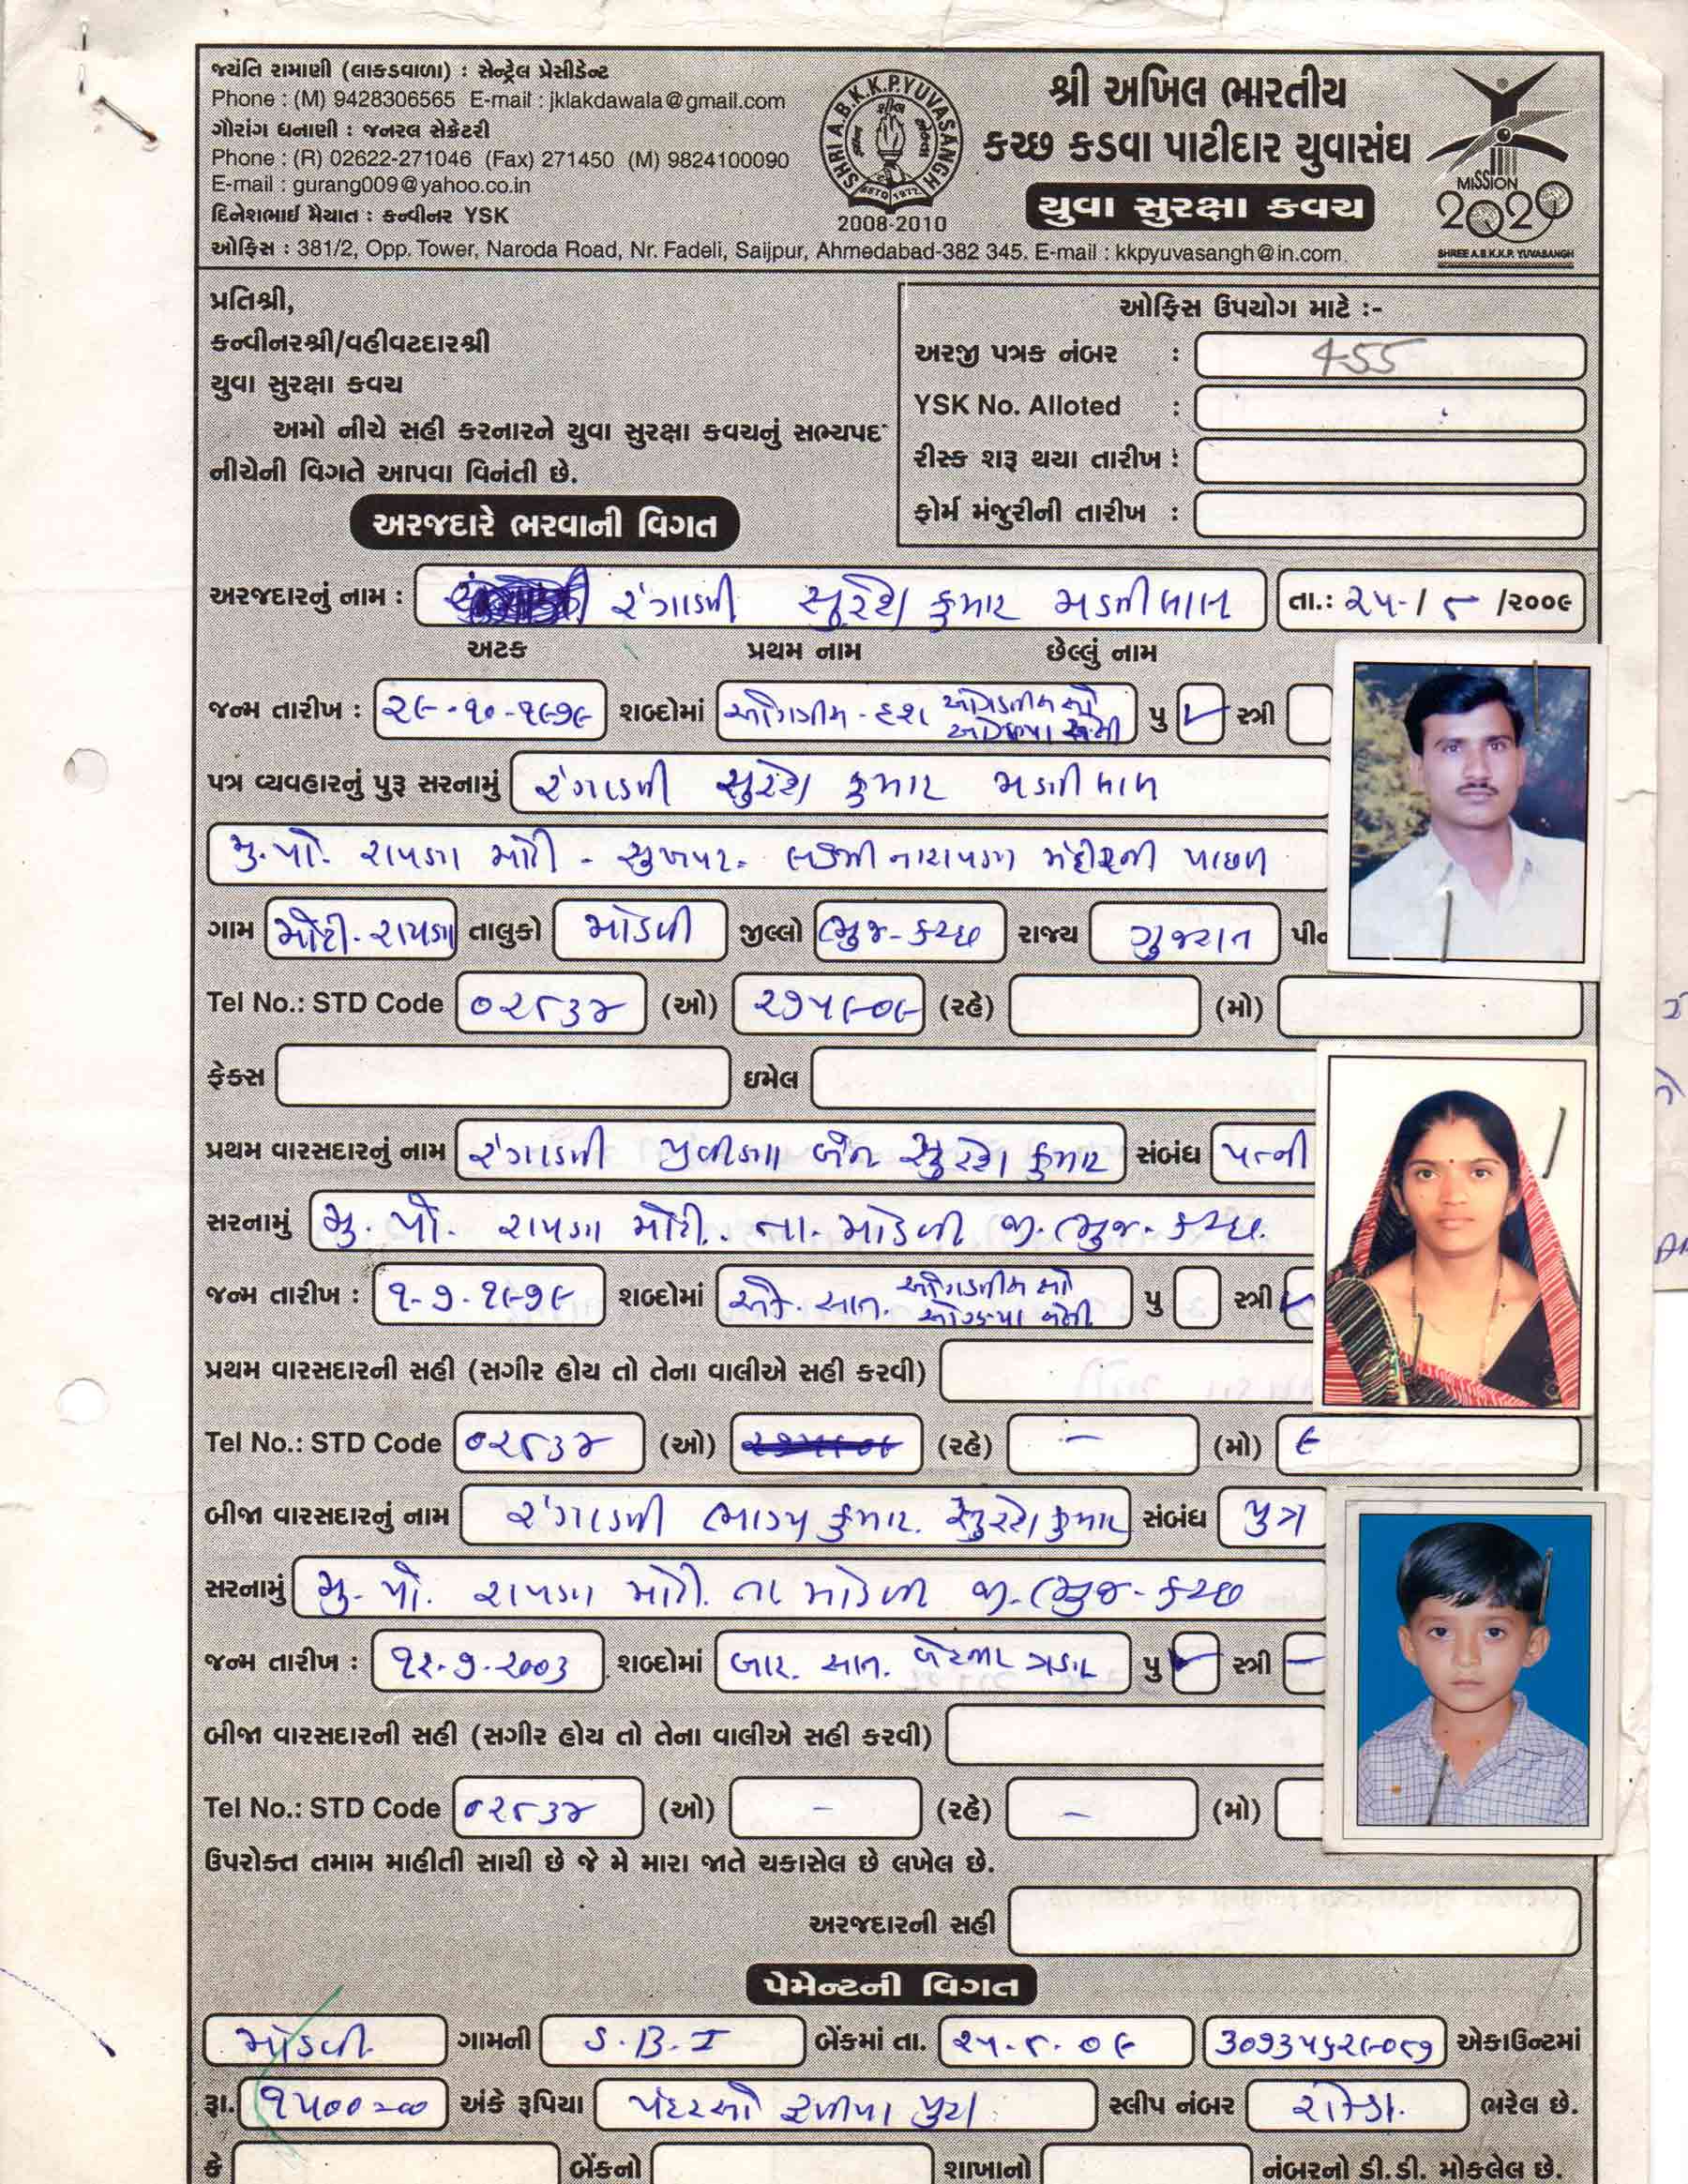 જ્યંતિ રામાણી (લાકડવાળા) : સેન્ટ્રેલ પ્રેસીડેન્ટ
Phone : (M) 9428306565 E-mail : jklakdawala@gmail.com
ગૌરાંગ ધનાણી : જનરલ સેક્રેટરી
Phone : (R) 02622-271046 (Fax) 271450 (M) 9824100090
E-mail : gurang009@yahoo.co.in
દિનેશભાઈ મૈયાત : કન્વીનર YSK
SHRI A.B.K.K.P.YUVASANGH
ESTD 1977
2008-2010
શ્રી અખિલ ભારતીય
કચ્છ કડવા પાટીદાર યુવાસંઘ
યુવા સુરક્ષા કવચ
MISSION
2020
SHREE A.B.K.K.P. YUVASANGH
ઓફિસ : 381/2, Opp. Tower, Naroda Road, Nr. Fadeli, Saijpur, Ahmedabad-382 345. E-mail : kkpyuvasangh@in.com
પ્રતિશ્રી,
કન્વીનરશ્રી/વહીવટદારશ્રી
યુવા સુરક્ષા કવચ
અમો નીચે સહી કરનારને યુવા સુરક્ષા કવચનું સભ્યપદ
નીચેની વિગતે આપવા વિનંતી છે.
ઓફિસ ઉપયોગ માટે :-
અરજી પત્રક નંબર : 455
YSK No. Alloted :
રીસ્ક શરૂ થયા તારીખ :
ફોર્મ મંજુરીની તારીખ :
અરજદારે ભરવાની વિગત
અરજદારનું નામ : રંગાણી સુરેશ કુમાર મણીલાલ તા.: ૨૫-/ ૮ /૨૦૦૯
અટક પ્રથમ નામ છેલ્લું નામ
જન્મ તારીખ : ૨૯-૧૦-૧૯૭૯ શબ્દોમાં પુ સ્ત્રી
પત્ર વ્યવહારનું પુરૂ સરનામું રંગાણી સુરેશ કુમાર મણીલાલ
મુ.પો. રાયણ મોટી - સુખપર- લક્ષ્મીનારાયણ મંદીરની પાછળ
ગામ મોટી-રાયણ તાલુકો માંડવી જીલ્લો ભુજ-કચ્છ રાજ્ય ગુજરાત
Tel No.: STD Code ૦૨૮૩૪ (ઓ) ૨૭૫૯૦૯ (રહે) (મો)
ફેક્સ ઇમેલ
પ્રથમ વારસદારનું નામ રંગાણી પ્રવીણા બેન સુરેશ કુમાર સંબંધ પત્ની
સરનામું મુ. પો. રાયણ મોટી. તા. માંડવી જી. ભુજ- કચ્છ.
જન્મ તારીખ : ૧-૭-૧૯૭૯ શબ્દોમાં પુ સ્ત્રી
પ્રથમ વારસદારની સહી (સગીર હોય તો તેના વાલીએ સહી કરવી)
Tel No.: STD Code ૦૨૮૩૪ (ઓ) (રહે) – (મો) ૯
બીજા વારસદારનું નામ રંગાણી ભાગ્ય કુમાર. સુરેશ કુમાર સંબંધ પુત્ર
સરનામું મુ. પો. રાયણ મોટી. તા માંડવી જી. ભુજ-કચ્છ
જન્મ તારીખ : ૧૨-૭-૨૦૦૩ શબ્દોમાં બાર. સાત. બેહજાર ત્રણ પુ સ્ત્રી –
બીજા વારસદારની સહી (સગીર હોય તો તેના વાલીએ સહી કરવી)
Tel No.: STD Code ૦૨૮૩૪ (ઓ) – (રહે) – (મો)
ઉપરોક્ત તમામ માહીતી સાચી છે જે મે મારા જાતે ચકાસેલ છે લખેલ છે.
અરજદારની સહી
પેમેન્ટની વિગત
માંડવી ગામની S.B.I બેંકમાં તા. ૨૫-૮-૦૯ એકાઉન્ટમાં
રૂા. ૧૫૦૦=૦૦ અંકે રૂપિયા પંદરસો રૂપીયા પુરા સ્લીપ નંબર રોકડા. ભરેલ છે.
કે બેંકનો શાખાનો નંબરનો ડી.ડી. મોકલેલ છે.